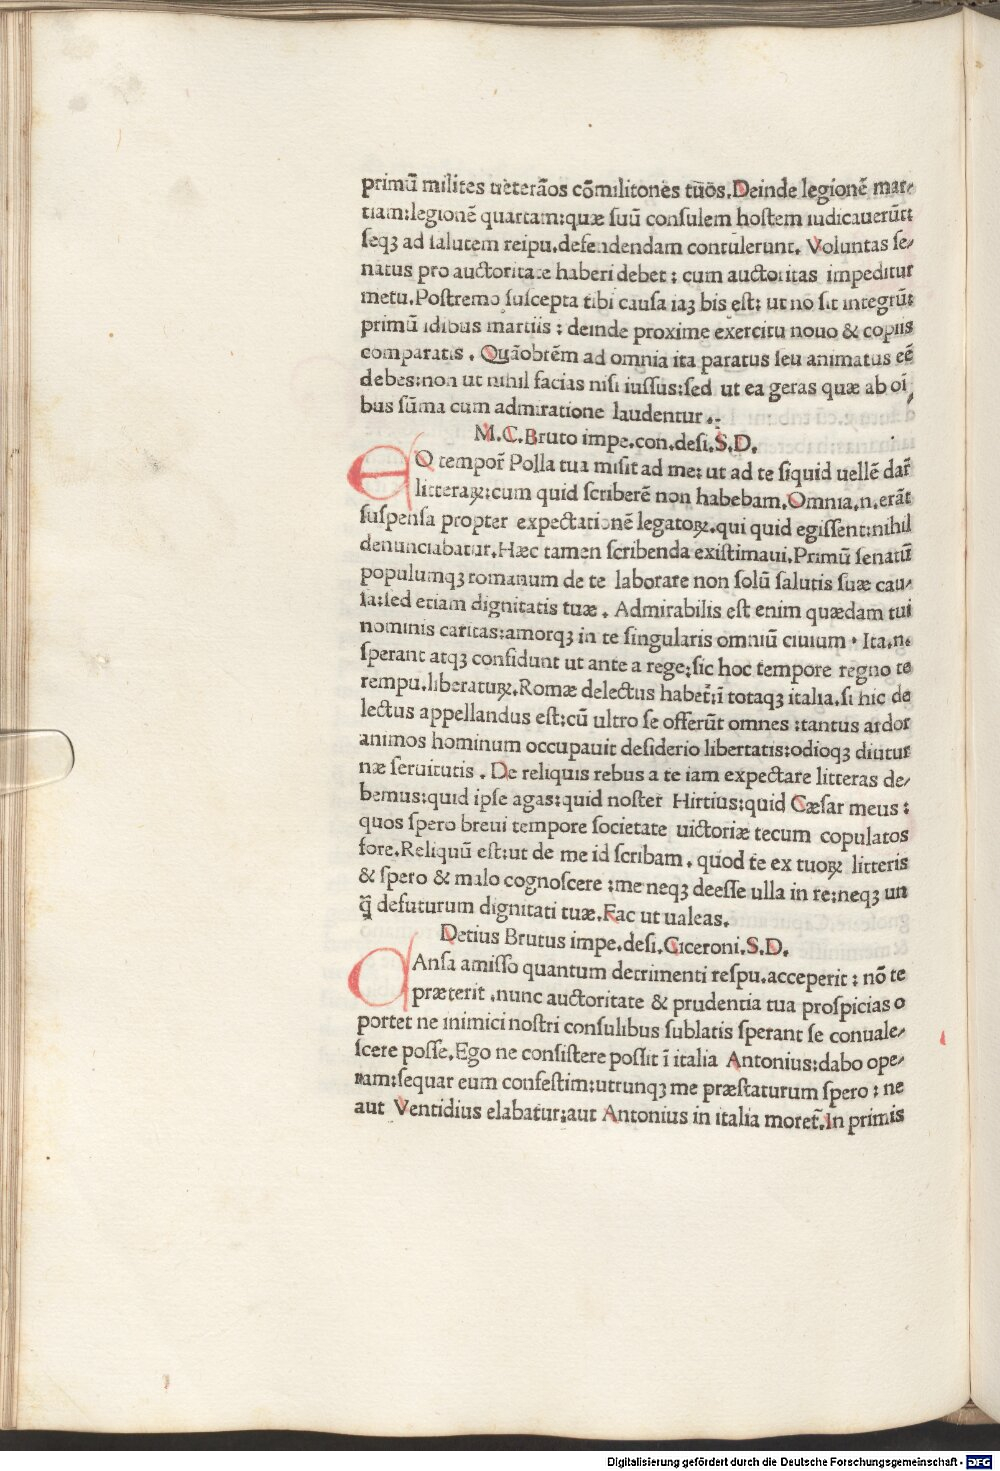 primū milites ueterāos cōmilitones tuōs. Deinde legionē mar⸗
tiam: legionē quartam: quæ ſuū conſulem hoſtem iudicauerūt:
ſeqꝫ ad ſalutem reipu. defendendam contulerunt. Voluntas ſe⸗
natus pro auctoritate haberi debet: cum auctoritas impeditur
metu. Poſtremo ſuſcepta tibi cauſa iaꝫ bis eſt: ut nō ſit integrū:
primū idibus martiis: deinde proxime exercitu nouo & copiis
comparatis. Quāobrēm ad omnia ita paratus ſeu animatus eē
debes: non ut nihil facias niſi iuſſus: ſed ut ea geras quæ ab oī⸗
bus ſūma cum admiratione laudentur.
M. C. Bruto impe. con. deſi. S. D.
EO tempor̄ Polla tua miſit ad me: ut ad te ſiquid uellē dar̄
litteraꝝ: cum quid ſcriberē non habebam. Omnia. n. erāt
ſuſpenſa propter expectationē legatoꝝ. qui quid egiſſent: nihil
denunciabatur. Hæc tamen ſcribenda exiſtimaui. Primū ſenatū
populumqꝫ romanum de te laborare non ſolū ſalutis ſuæ cau⸗
ſa: ſed etiam dignitatis tuæ. Admirabilis eſt enim quædam tui
nominis caritas: amorqꝫ in te ſingularis omniū ciuium. Ita. n.
ſperant atqꝫ confidunt ut ante a rege: ſic hoc tempore regno te
rempu. liberaturꝝ. Romæ delectus habet̄: ī totaqꝫ italia. ſi hic de
lectus appellandus eſt: cū ultro ſe offerūt omnes: tantus ardor
animos hominum occupauit deſiderio libertatis: odioqꝫ diutur
næ ſeruitutis. De reliquis rebus a te iam expectare litteras de⸗
bemus: quid ipſe agas: quid noſter Hirtius: quid Cæſar meus:
quos ſpero breui tempore ſocietate uictoriæ tecum copulatos
fore. Reliquū eſt: ut de me id ſcribam. quod te ex tuoꝝ litteris
& ſpero & malo cognoſcere: me neqꝫ deeſſe ulla in re: neqꝫ un
q̄̄ defuturum dignitati tuæ. Fac ut ualeas.
Detius Brutus impe. deſi. Ciceroni. S. D.
PAnſa amiſſo quantum detrimenti reſpu. acceperit: nō te
præterit. nunc auctoritate & prudentia tua proſpicias o
portet ne inimici noſtri conſulibus ſublatis ſperant ſe conuale⸗
ſcere poſſe. Ego ne conſiſtere poſſit ī italia Antonius: dabo ope⸗
ram: ſequar eum confeſtim: utrunqꝫ me præſtaturum ſpero: ne
aut Ventidius elabatur: aut Antonius in italia moret̄. In primis
Digitalisierung gefördert durch die Deutsche Forschungsgemeinschaft - DFG